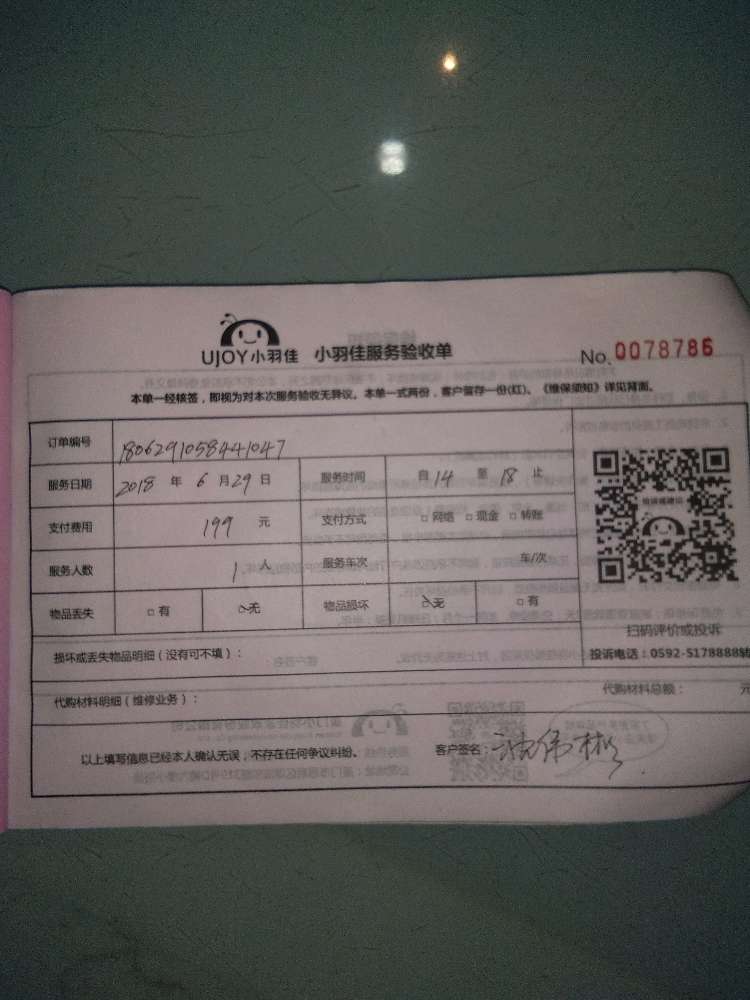 UJOY小羽佳 小羽佳服务验收单 No. 0078786
本单一经核签，即视为对本次服务验收无异议。本单一式两份，客户留存一份(红)。《维保须知》详见背面。
订单编号 1806291058441047
服务日期 2018 年 6 月 29 日 服务时间 自 14 至 18 止
支付费用 199 元 支付方式 □ 网络 □ 现金 □ 转账
服务人数 1 人 服务车次 车/次
物品丢失 □ 有 □ 无 物品损坏 □ 无 □ 有
扫码评价或投诉
损坏或丢失物品明细（没有可不填）： 投诉电话：0592-5178888转
代购材料明细（维修业务）： 代购材料总额： 元
以上填写信息已经本人确认无误，不存在任何争议纠纷。 客户签名：